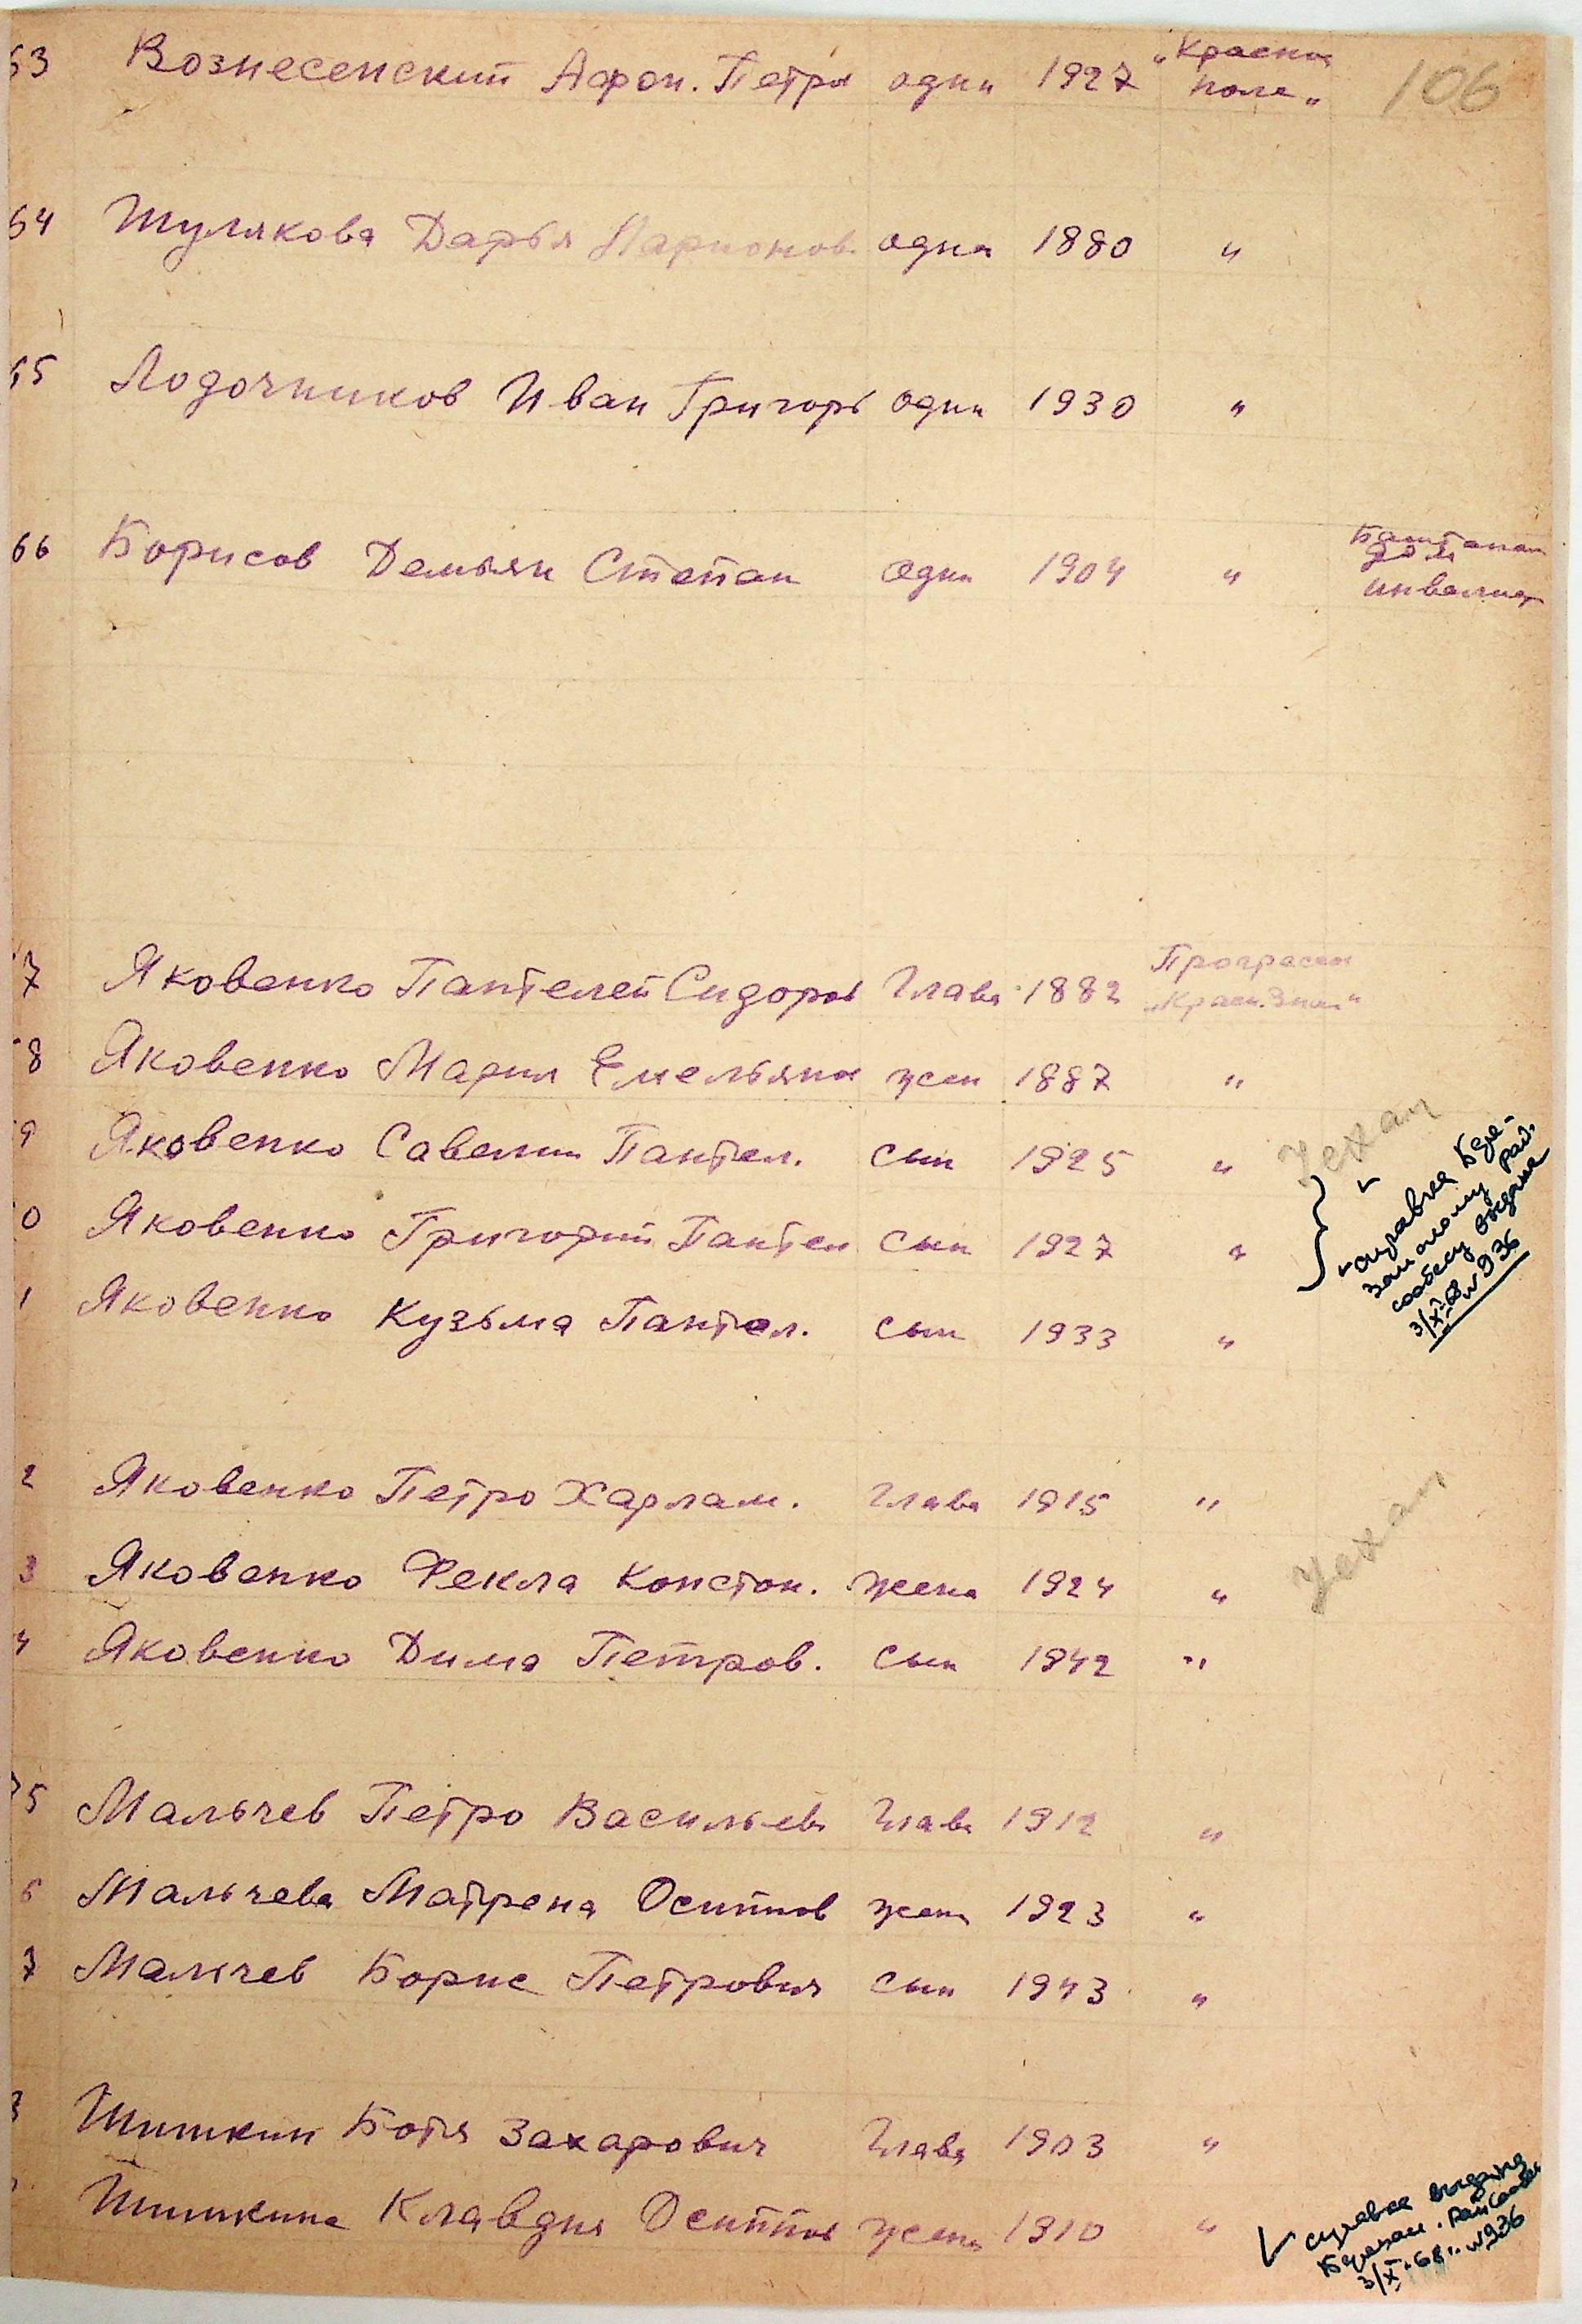 63 Вознесенский Афон. Петро один 1927 „Красное поле„ 106
64 Шулякова Дарья Ларионов. одна 1880 "
65 Лодочников Иван Григорь один 1930 "
66 Борисов Демьян Степан один 1904 " Баштанан дом инвалид
7 Яковенко Пантелей Сидоров Глава 1882 Прогрессов „Красн. Знам"
8 Яковенко Мария Емельяно жен 1887 "
9 Яковенко Савелий Пантел. сын 1925 " Уехал
0 Яковенко Григорий Пантел сын 1927 "
1 Яковенко Кузьма Пантел. сын 1933 "
справка Бере-
занскому рай.
собесу выдана
3/X-68 N 936
2 Яковенко Петро Харлам. Глава 1915 "
3 Яковенко Фекла Констон. жена 1924 " Уехал
4 Яковенко Дима Петров. сын 1942 "
75 Мальчев Петро Васильев Глава 1912 "
6 Мальчева Матрена Осипов жена 1923 "
7 Мальчев Борис Петрович сын 1943 "
8 Шишкин Ботя Захарович Глава 1903 "
Шишкина Клавдия Осипов жена 1910 "
справка выдана
Березан. райсобес
3/X-68г. N936